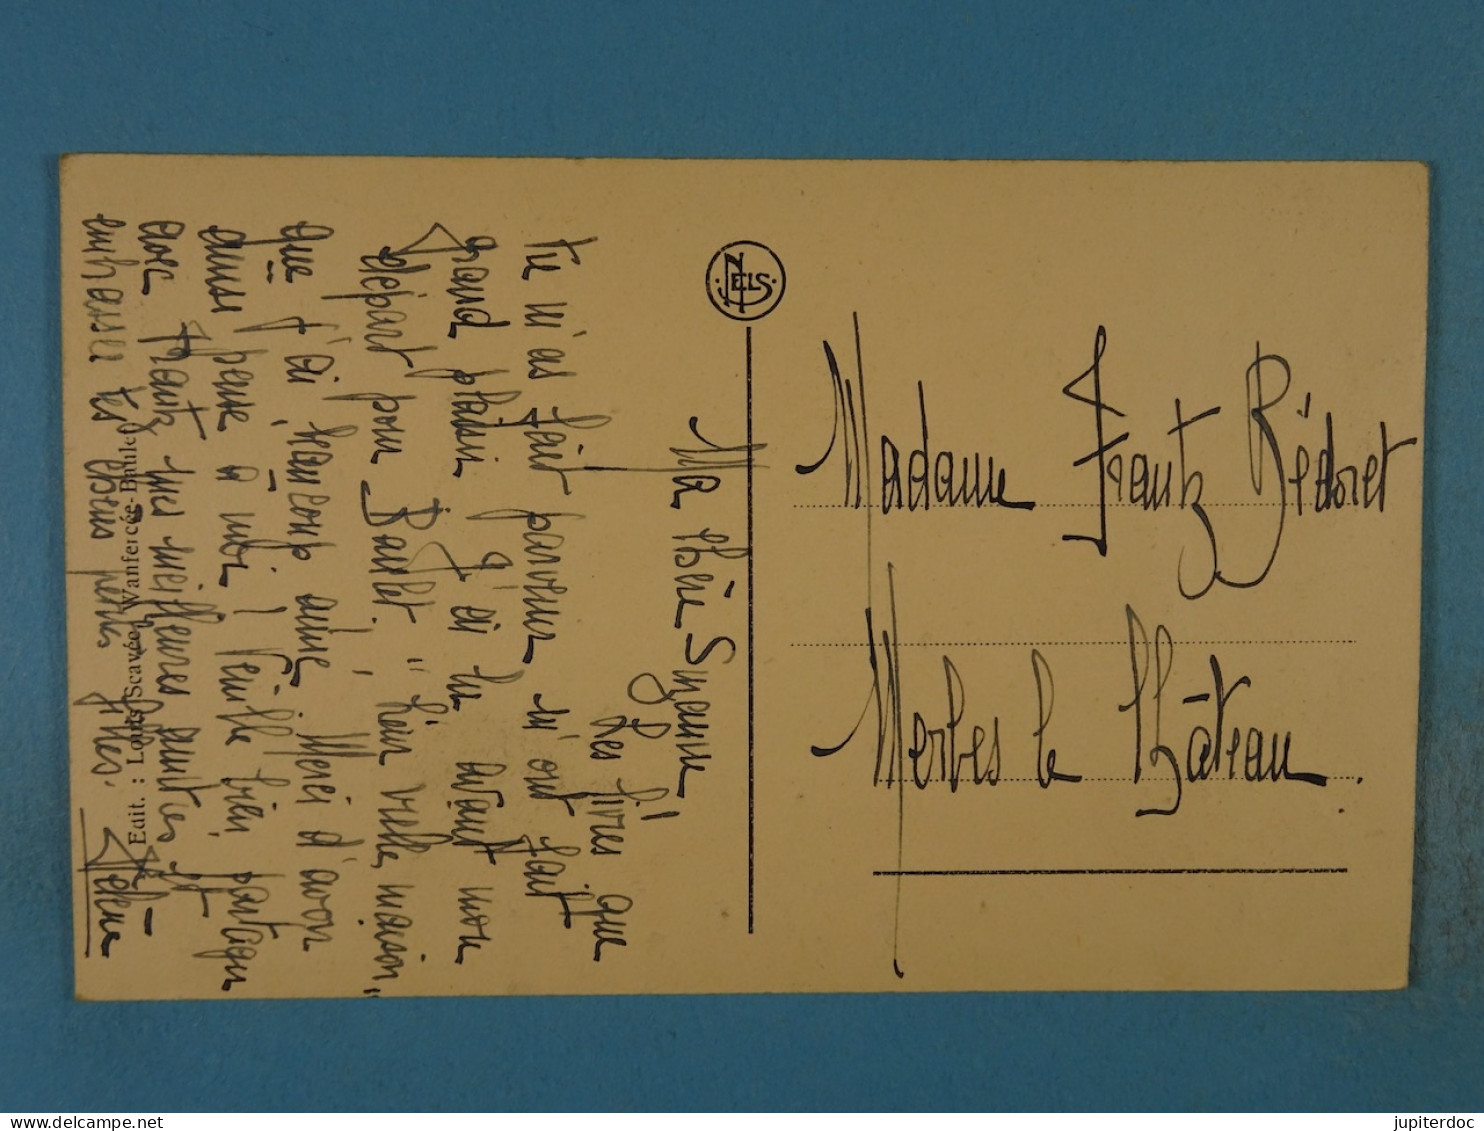 Ma Chère Suzanne,
Les livres que
tu m'as fait parvenir m'ont fait
grand plaisir g' ai lu avant mon
départ pour Baulet, "Leur vieille maison"
que j'ai beaucoup aimé, Merci d'avoir
aussi pensé à moi ! Veuille bien partager
avec Frantz mes meilleures amitiés et
embrasser tes chères petites filles.
Edit. : Louis Scavée, Wanfercée-Baulet
NELS
Madame Frantz Bédoret
Merbes le Château.
jupiterdoc